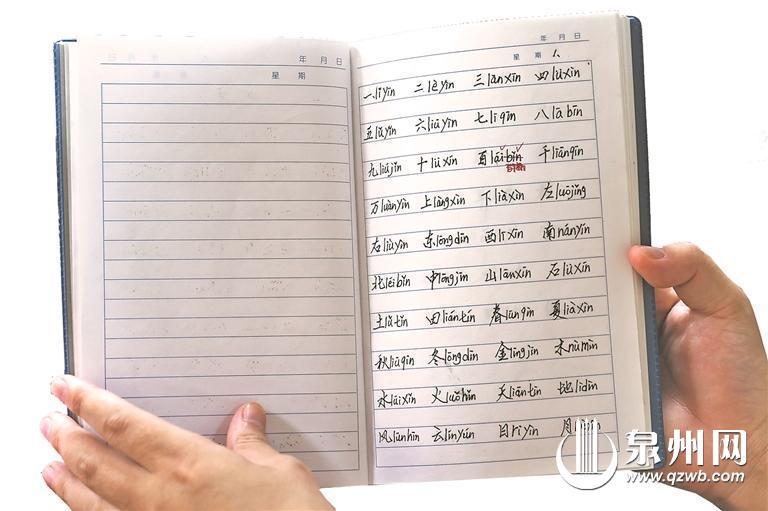 年 月 日
星 期
年 月 日
星 期
一līyīn 二lèyīn 三lānxīn 四lùxīn
五lǔyīn 六liùyīn 七līqīn 八lābīn
九liǔjīn 十lúxīn 百lǎibǐn 千liānqīn
万luànyīn 上làngxīn 下liàxīn 左luǒjīng
右liùyīn 东lōngdīn 西līxīn 南nányīn
北lěibǐn 中lōngjīn 山lānxīn 石lúxīn
土lǔtǐn 田liántín 春lūnqīn 夏liàxīn
秋liūqīn 冬lōngdīn 金līngjīn 木nùmīn
水lǔixīn 火luǒhǐn 天liāntīn 地lìdīn
风lūnhīn 云línyún 日rìyīn 月
泉州网
www.qzwb.com